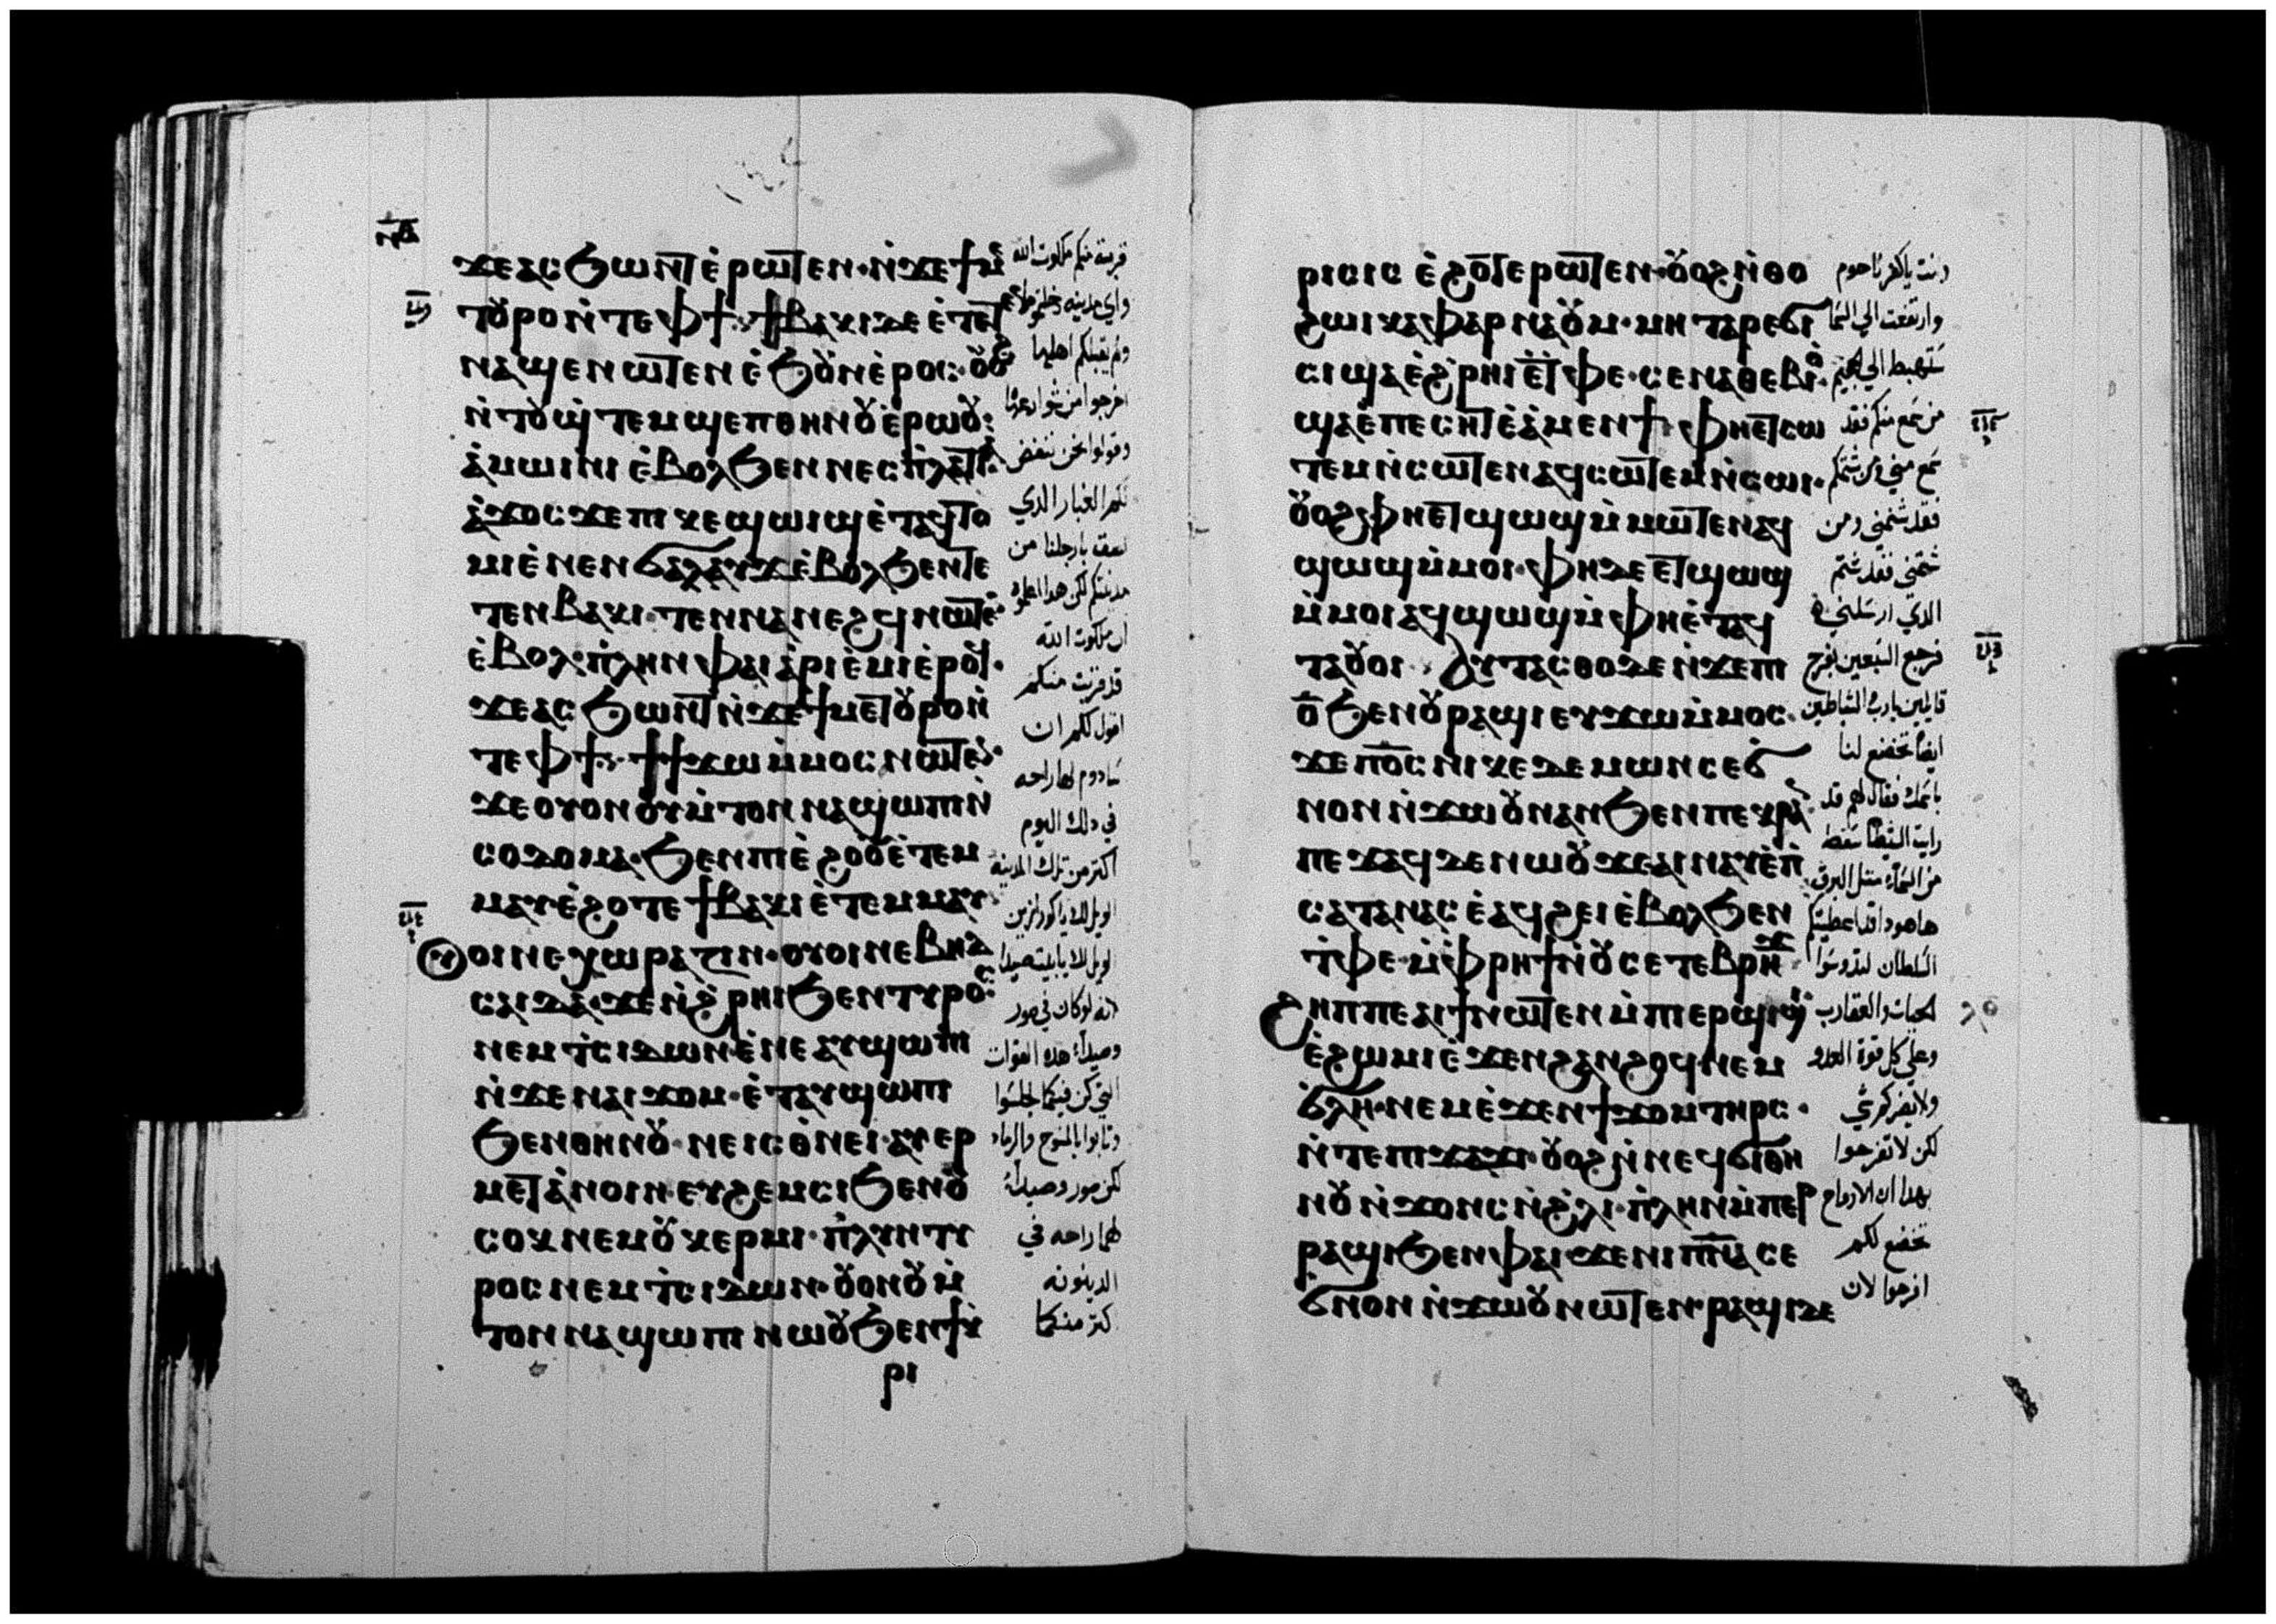 ϫⲉⲁⲥϧⲱⲛⲧ ⲉ̀ⲣⲱⲧⲉⲛ· ⲛ̀ϫⲉϯⲙⲉ
ⲧⲟⲩⲣⲟ ⲛ̀ⲧⲉ ⲫϯ: ϯⲃⲁⲕⲓ ⲇⲉ ⲉ̀ⲧⲉⲧ
ⲛⲁϣⲉⲛⲱⲧⲉⲛ ⲉ̀ϧⲟⲩⲛ ⲉ̀ⲣⲟⲥ: ⲟⲩⲟϩ
ⲛ̀ⲧⲟⲩϣ̀ⲧⲉⲙϣⲉⲡ ⲑⲏⲛⲟⲩ ⲉ̀ⲣⲱⲟⲩ:
ⲁ̀ⲙⲱⲓⲛⲓ ⲉ̀ⲃⲟⲗϧⲉⲛ ⲛⲉⲥⲡ̀ⲗⲁⲧⲓⲁ
ⲁ̀ϫⲟⲥ ϫⲉ ⲡⲓⲕⲉϣⲱⲓϣ ⲉ̀ⲧⲁϥⲧⲟ
ⲙⲓ ⲉ̀ⲛⲉⲛϭⲁⲗⲁⲩϫ ⲉ̀ⲃⲟⲗϧⲉⲛ ⲧⲉ
ⲧⲉⲛⲃⲁⲕⲓ· ⲧⲉⲛⲛⲁⲛⲉϩϥ ⲛⲱⲧⲉⲛ
ⲉ̀ⲃⲟⲗ· ⲡ̀ⲗⲏⲛ ⲫⲁⲓ ⲁ̀ⲣⲓⲉ̀ⲙⲓ ⲉ̀ⲣⲟϥ·
ϫⲉⲁⲥϧⲱⲛⲧ ⲛ̀ϫⲉϯⲙⲉⲧⲟⲩⲣⲟ ⲛ̀
ⲧⲉ ⲫϯ: ϯϫⲱ ⲙ̀ⲙⲟⲥ ⲛⲱⲧⲉⲛ·
ϫⲉ ⲟⲩⲟⲛ ⲟⲩⲙ̀ⲧⲟⲛ ⲛⲁϣⲱⲡⲓ ⲛ̀
ⲥⲟⲇⲟⲙⲁ· ϧⲉⲛ ⲡⲓⲉ̀ϩⲟⲟⲩ ⲉ̀ⲧⲉⲙ
ⲙⲁⲩ ⲉ̀ϩⲟⲧⲉ ϯⲃⲁⲕⲓ ⲉ̀ⲧⲉⲙⲙⲁⲩ·
ⲟⲩⲟⲓ ⲛⲉ ⲭⲱⲣⲁⲍⲓⲛ· ⲟⲩⲟⲓ ⲛⲉ ⲃⲏⲇ
ⲥⲁⲓⲇⲁ· ϫⲉ ⲛ̀ϩ̀ⲣⲏⲓ ϧⲉⲛ ⲧⲩⲣⲟⲥ
ⲛⲉⲙ ⲧ̀ⲥⲓⲇⲱⲛ· ⲉ̀ⲛⲉ ⲁⲩϣⲱⲡⲓ
ⲛ̀ϫⲉ ⲛⲁⲓϫⲟⲙ· ⲉ̀ⲧⲁⲩϣⲱⲡⲓ
ϧⲉⲛ ⲑⲏⲛⲟⲩ· ⲛⲉ ⲓⲥ ⲑ̀ⲛⲉⲓ· ⲁⲩⲉⲣ
ⲙⲉⲧⲁ̀ⲛⲟⲓⲛ· ⲉⲩϩⲉⲙⲥⲓ ϧⲉⲛ ⲟⲩ
ⲥⲟⲕ ⲛⲉⲙ ⲟⲩⲕⲉⲣⲙⲓ· ⲡ̀ⲗⲏⲛ ⲧⲩ
ⲣⲟⲥ ⲛⲉⲙ ⲧ̀ⲥⲓⲇⲱⲛ· ⲟⲩⲟⲛ ⲟⲩⲙ̀
ⲧⲟⲛ ⲛⲁϣⲱⲡⲓ ⲛⲱⲟⲩ ϧⲉⲛ ϯⲕ
ⲣⲓ
قربت منكم ملكوت الله
واي مدينه دخلتموها
ولم يقبلكم اهلها
اخرجوا من شوارعها
وقولوا نحن ننفض
لكم الغبار الدي
لصق بارجلنا من
مدينتكم لكن هدا اعلموا
ان ملكوت الله
قد قربت منكم
اقول لكم ان
سادوم لها راحه
في دلك اليوم
اكتر من تلك المدينه
الويل لك يا كورازين
الويل لك يا بيت صيدا
لانه لو كان في صور
وصيدا هده القوات
التي كن فيكما لجلسوا
وتابوا بالمسوح والرماد
لكن صور وصيدا
لهما راحه في
الدينونه
اكتر منكما
ⲣⲓⲥⲓⲥ ⲉ̀ϩⲟⲧⲉⲣⲱⲧⲉⲛ· ⲟⲩⲟϩ ⲛ̀ⲑⲟ
ϩⲱⲓ ⲕⲁⲫⲁⲣⲛⲁⲟⲩⲙ· ⲙⲏ ⲧⲁⲣⲉϭⲓ
ⲥⲓ ϣⲁ ⲉ̀ϩ̀ⲣⲏⲓ ⲉ̀ⲧⲫⲉ· ⲥⲉⲛⲁⲑⲉⲃⲓⲟ·
ϣⲁ ⲉ̀ⲡⲉⲥⲏⲧ ⲉ̀ⲁ̀ⲙⲉⲛϯ: ⲫⲏ ⲉⲧⲥⲱ
ⲧⲉⲙ ⲛ̀ⲥⲱⲧⲉⲛ ⲁϥⲥⲱⲧⲉⲙ ⲛ̀ⲥⲱⲓ·
ⲟⲩⲟϩ ⲫⲏ ⲉⲧϣⲱϣ ⲙ̀ⲙⲱⲧⲉⲛ ⲁϥ
ϣⲱϣ ⲙ̀ⲙⲟⲓ· ⲫⲏ ⲇⲉ ⲉⲧϣⲱϣ
ⲙ̀ⲙⲟⲓ ⲁϥϣⲱϣ ⲙ̀ⲫⲏ ⲉ̀ⲧⲁϥ
ⲧⲁⲟⲩⲟⲓ· ⲁⲩⲧⲁⲥⲑⲟ ⲇⲉ ⲛ̀ϫⲉ ⲡⲓ
ⲟ̅ ϧⲉⲛ ⲟⲩⲣⲁϣⲓ ⲉⲩϫⲱ ⲙ̀ⲙⲟⲥ·
ϫⲉ ⲡⲟ̅ⲥ ⲛⲓⲕⲉⲇⲉⲙⲱⲛ ⲥⲉϭ
ⲛⲟⲛ ⲛ̀ϫⲱⲟⲩ ⲛⲁⲛ ϧⲉⲛ ⲡⲉⲕⲣⲁⲛ
ⲡⲉϫⲁϥ ⲇⲉ ⲛⲱⲟⲩ ϫⲉ ⲁⲓⲛⲁⲩ ⲉ̀ⲡ̀
ⲥⲁⲧⲁⲛⲁⲥ ⲉ̀ⲁϥϩⲉⲓ ⲉ̀ⲃⲟⲗϧⲉⲛ
ⲧ̀ⲫⲉ· ⲙ̀ⲫ̀ⲣⲏϯ ⲛ̀ⲟⲩⲥⲉⲧⲉⲃⲣⲏϫ
ϩⲏⲡⲡⲉ ⲁⲓϯ ⲛⲱⲧⲉⲛ ⲙ̀ⲡⲓⲉⲣϣⲓϣⲓ
ⲉ̀ϩⲱⲙⲓ ⲉ̀ϫⲉⲛ ϩⲁⲛϩⲟϥ ⲛⲉⲙ
ϭⲗⲏ· ⲛⲉⲙ ⲉ̀ϫⲉⲛ ϯϫⲟⲙ ⲧⲏⲣⲥ·
ⲛ̀ⲧⲉ ⲡⲓϫⲁϫⲓ· ⲟⲩⲟϩ ⲛ̀ⲛⲉϥϭⲓ ⲑⲏ
ⲛⲟⲩ ⲛ̀ϫⲟⲛⲥ ⲛ̀ϩ̀ⲗⲓ· ⲡ̀ⲗⲏⲛ ⲙ̀ⲡⲉⲣ
ⲣⲁϣⲓ ϧⲉⲛ ⲫⲁⲓ· ϫⲉ ⲛⲓⲡ̅ⲛ̅ⲁ̅ ⲥⲉ
ϭⲛⲟⲛ ⲛ̀ϫⲱⲟⲩ ⲛⲱⲧⲉⲛ· ⲣⲁϣⲓ ⲇⲉ
وانت يا كفرناحوم
وارتفعت الي السما
ستهبط الي الجحيم
من سمع منكم فقد
سمع مني ومن شتمكم
فقد شتمني ومن
شتمني فقد شتم
الدي ارسلني
فرجع السبعين بفرح
قايلين يارب الشياطين
ايضا تخضع لنا
باسمك فقال لهم قد
رايت الشيطان سقط
من السماء متل البرق
ها هودا قد اعطيتكم
السلطان لتدوسوا
الحيات والعقارب
وعلي كل قوة العدو
ولا يضركم شي
لكن لا تفرحوا
بهدا ان الارواح
تخضع لكم
افرحوا لان